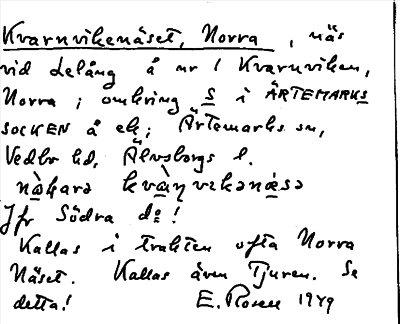 Kvarnvikenäset, Norra, näs
vid Lelång å nr 1 Kvarnviken,
Norra; omkring S i ÄRTEMARKS
SOCKEN å ek; Ärtemarks sn,
Vedbo hd, Älvsborgs l.
nàharə kvàṇvekənæsə
Jfr Södra do!
Kallas i trakten ofta Norra
Näset. Kallas även Tjuren. Se
detta! E. Rosell 1949